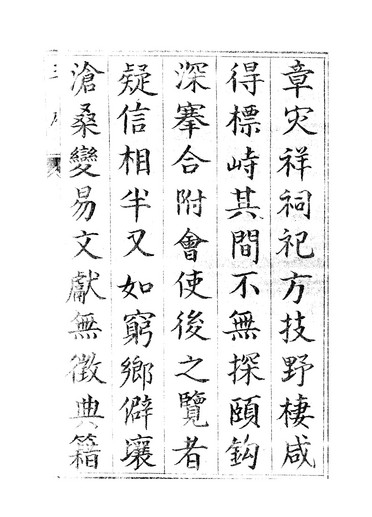 章灾祥祠祀方技野棲咸
得標峙其間不無探頤鈎
深搴合附會使後之覽者
疑信相半又如窮鄉僻壤
滄桑變易文獻無徵典籍